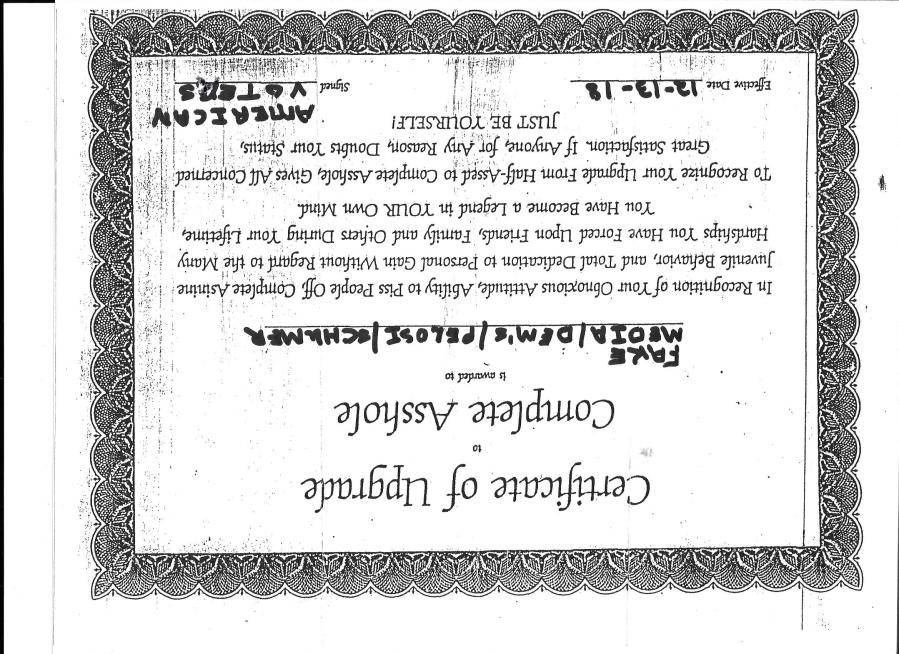 Certificate of Upgrade
to
Complete Asshole
is awarded to
FAKE
MEDIA/DEM'S/PELOSI/SCHUMER
In Recognition of Your Obnoxious Attitude, Ability to Piss People Off, Complete Asinine
Juvenile Behavior, and Total Dedication to Personal Gain Without Regard to the Many
Hardships You Have Forced Upon Friends, Family and Others During Your Lifetime,
You Have Become a Legend in YOUR Own Mind.
To Recognize Your Upgrade From Half-Assed to Complete Asshole, Gives All Concerned
Great Satisfaction. If Anyone, for Any Reason, Doubts Your Status,
JUST BE YOURSELF!
AMERICAN
Effective Date 12-13-18 Signed VOTERS